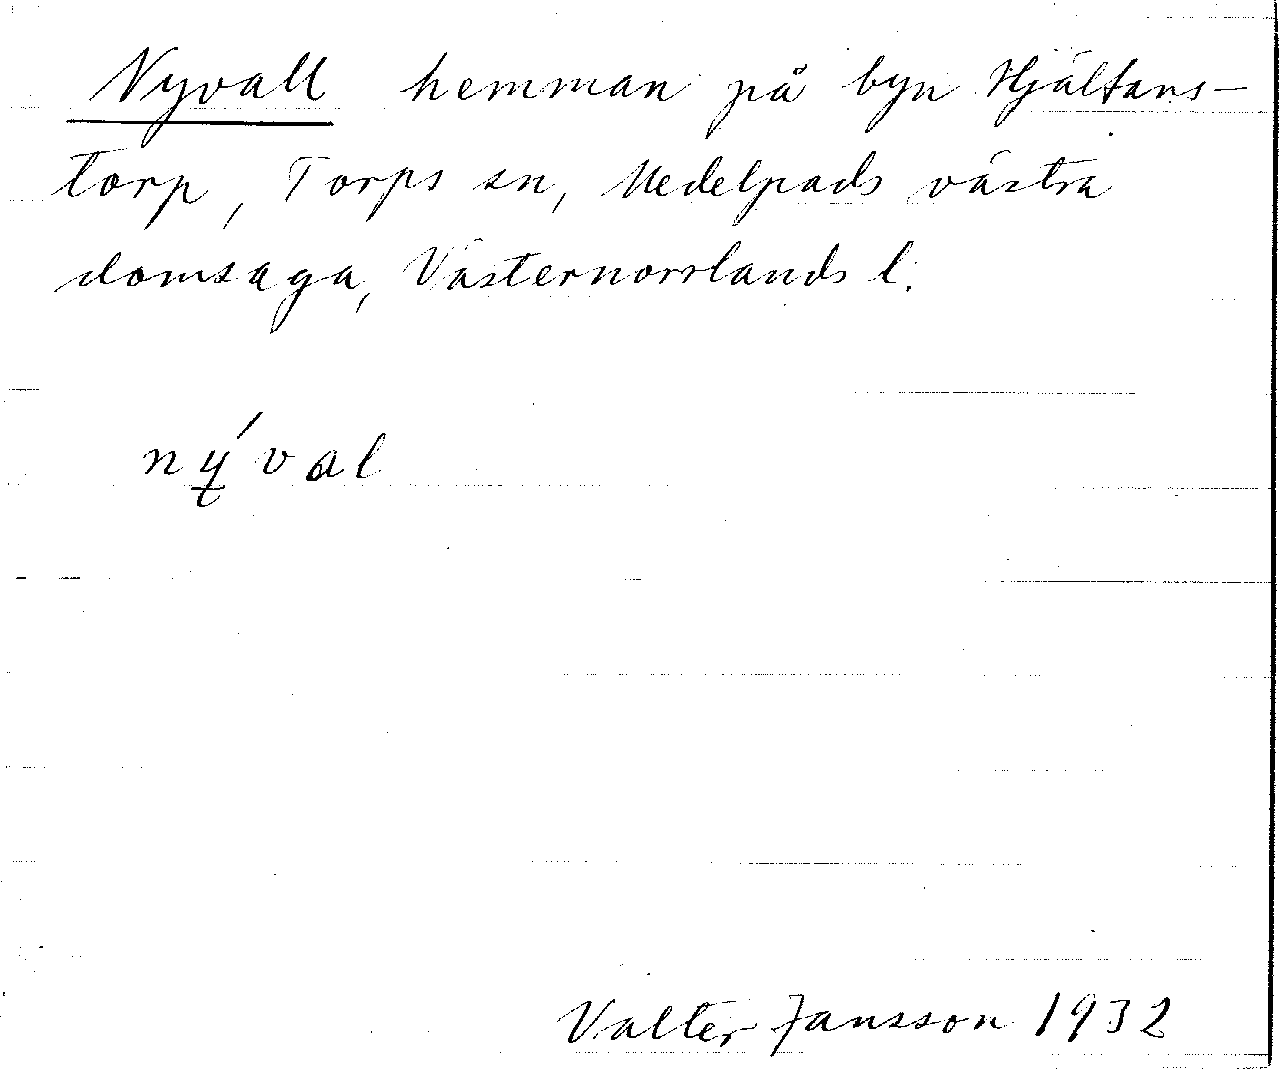 Nyvall hemman på byn Hjältans-
torp, Torps sn, Medelpads västra
domsaga, Västernorrlands l.
ný̱val
Valter Jansson 1932